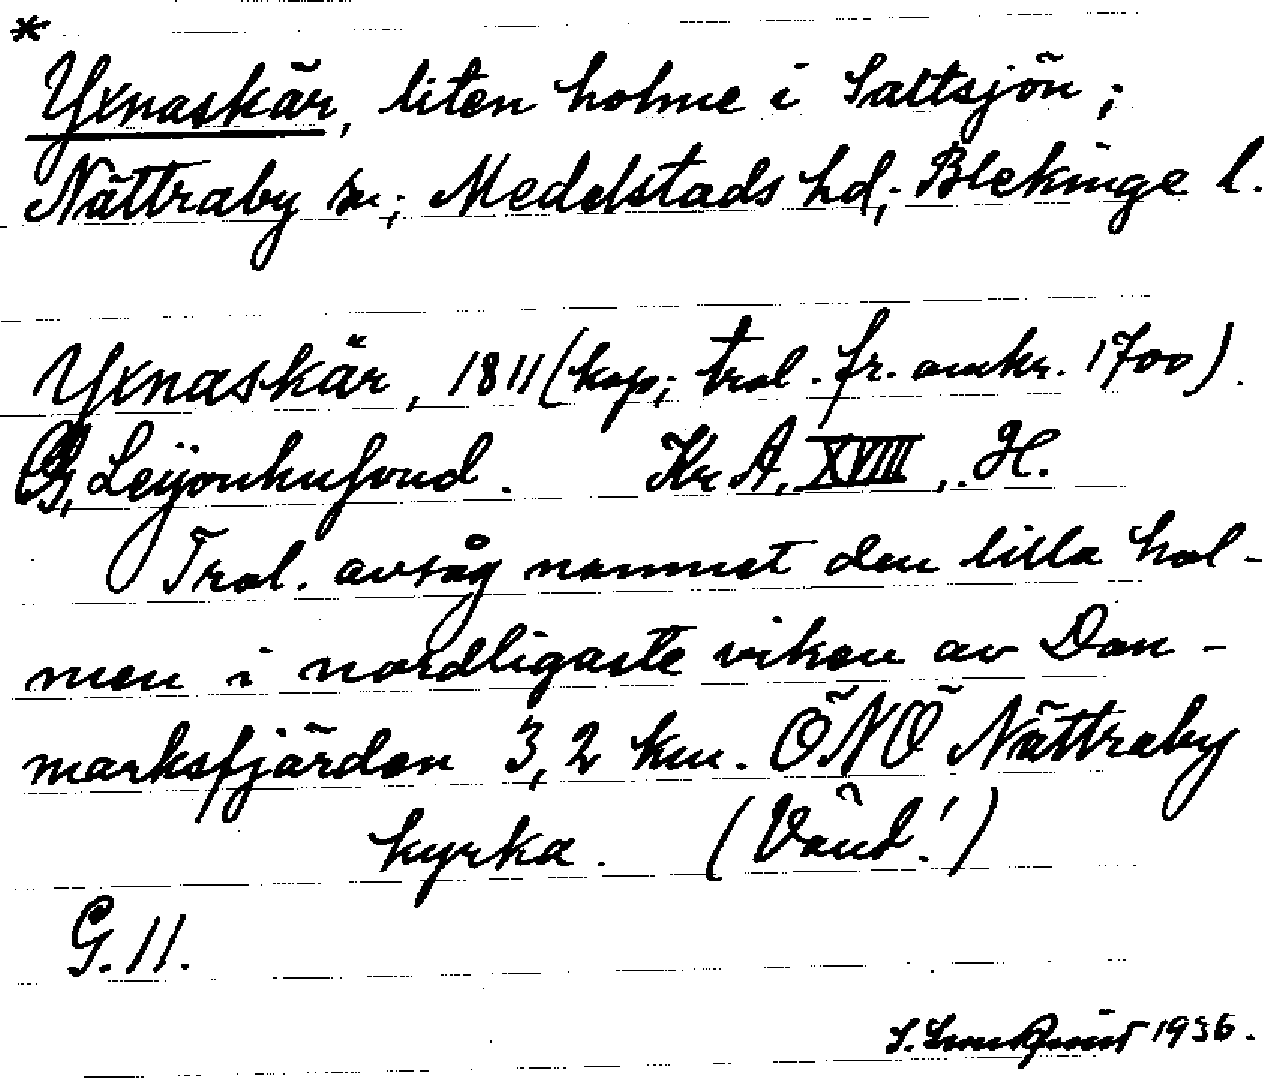 *
Yxnaskär, liten holme i Saltsjön;
Nättraby sn; Medelstads hd; Blekinge l.
Yxnaskär, 1811 (kop; trol. fr. omkr. 1700).
G. Leijonhufvud. Kr A. XVIII, H.
Trol. avsåg namnet den lilla hol-
men i nordligaste viken av Dan-
marksfjärden 3,2 km. ÖNÖ Nättraby
kyrka. (Vänd!)
G. 11.
1936.